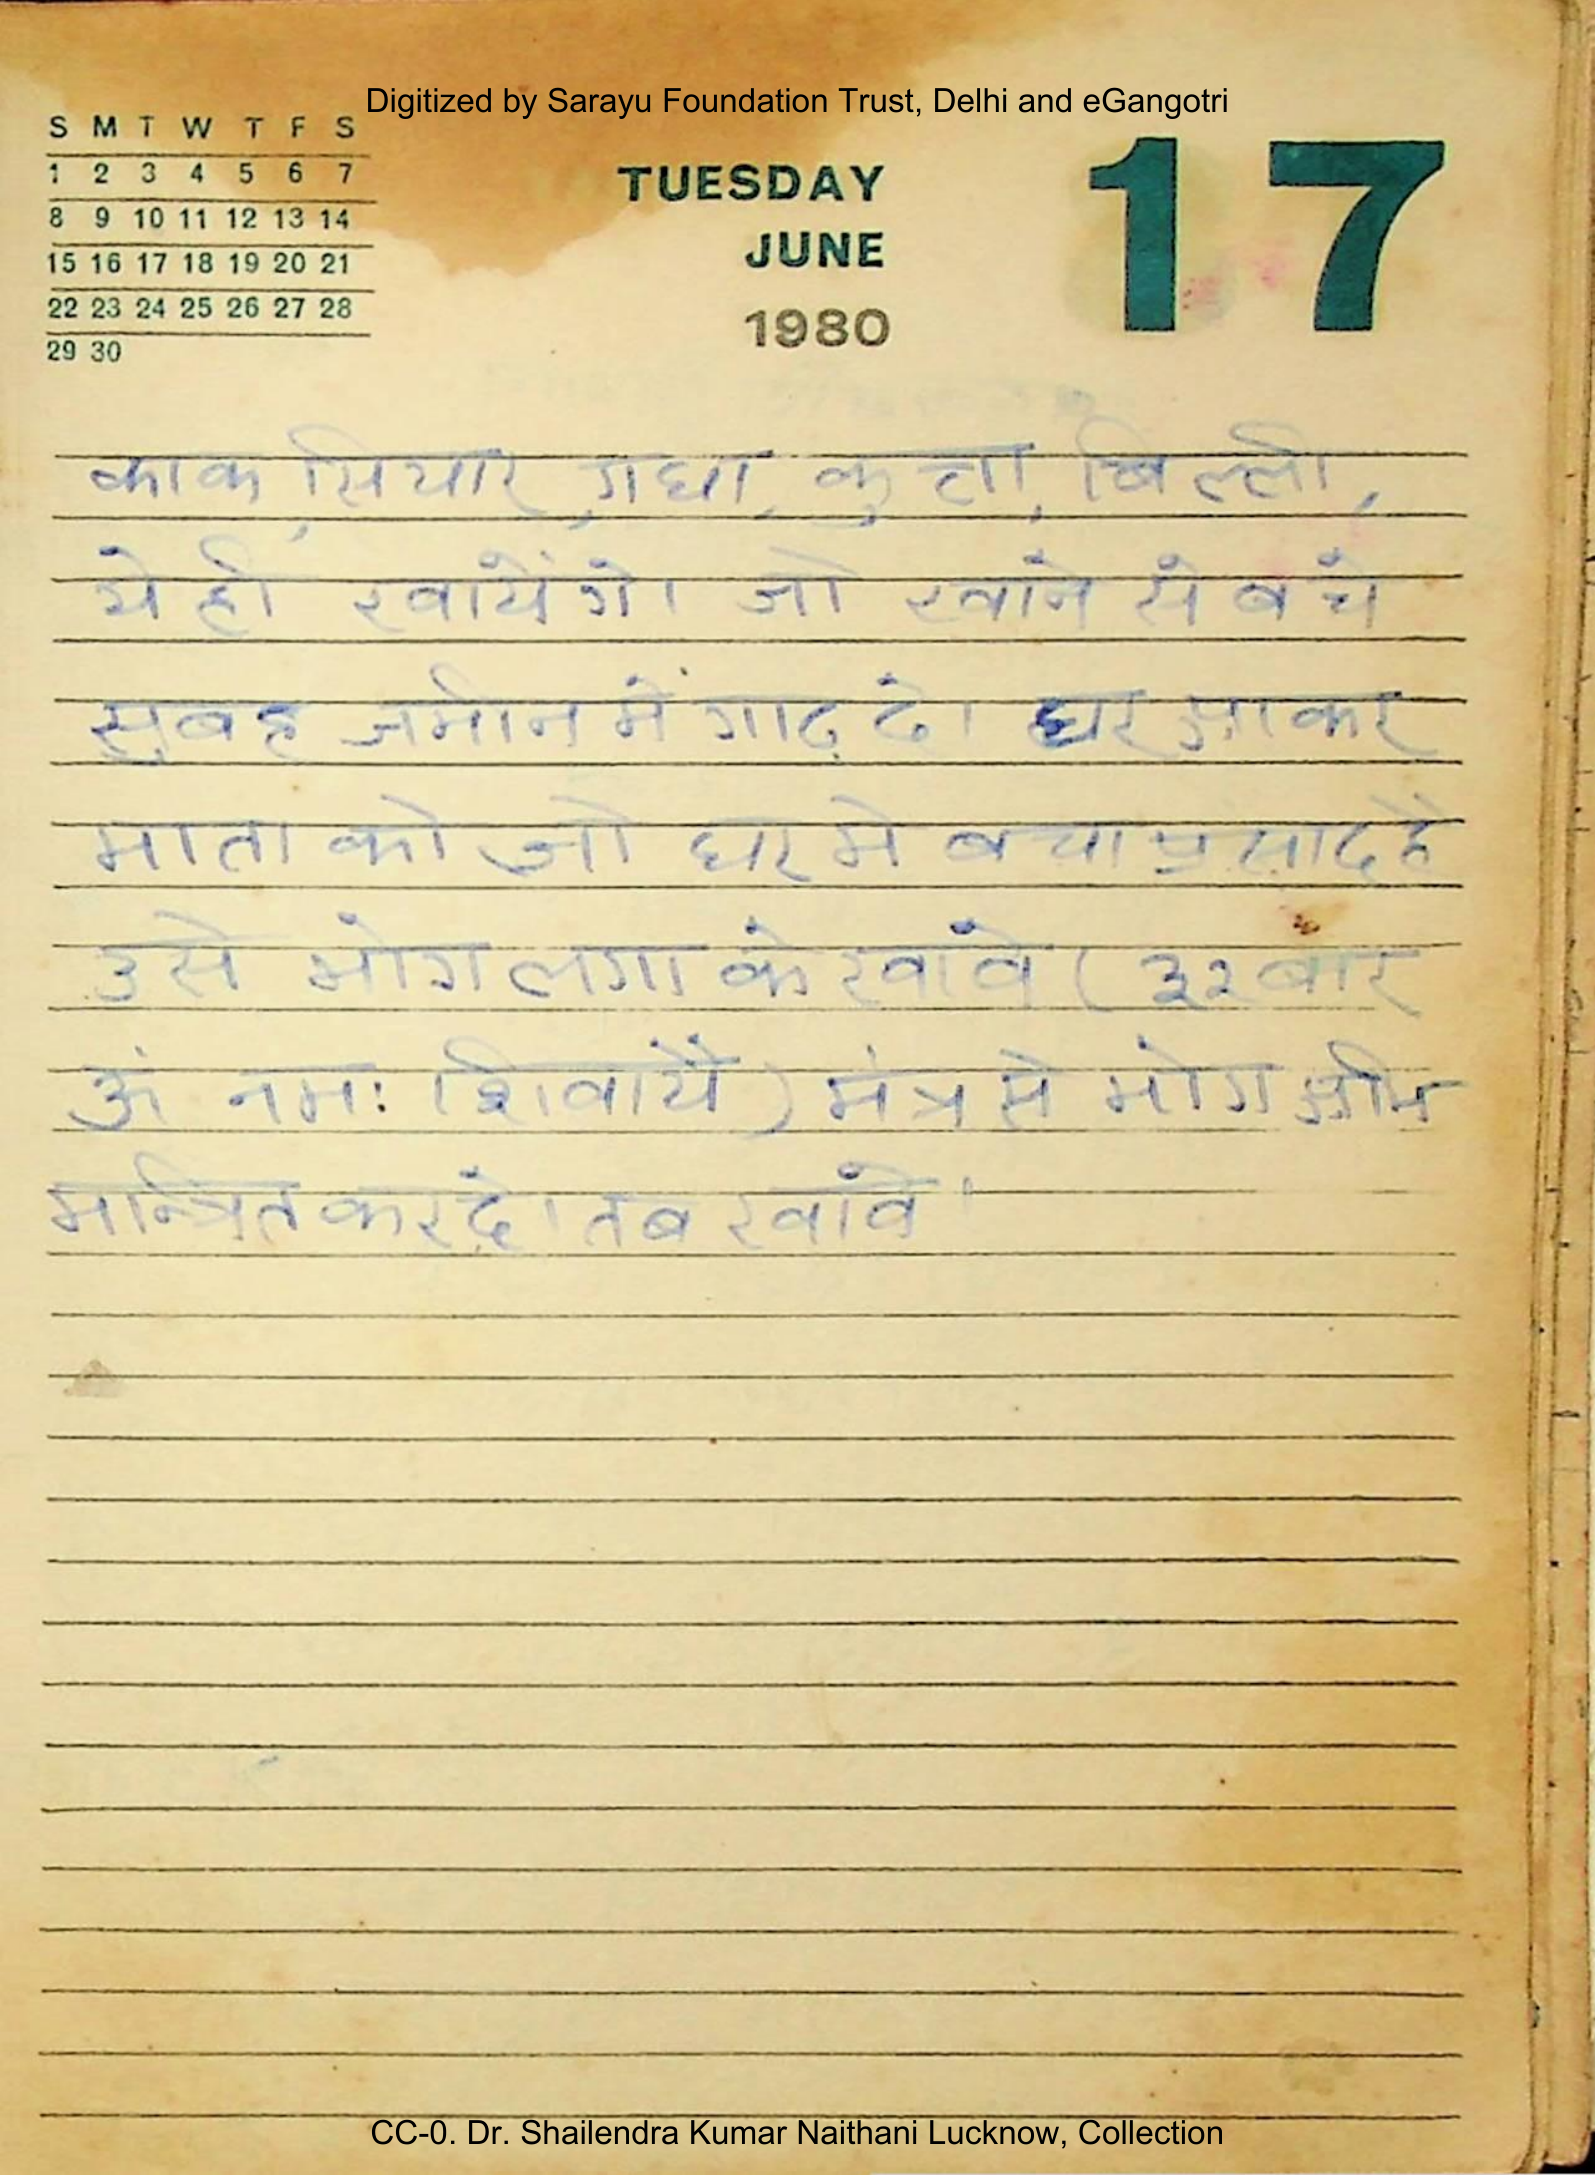 Digitized by Sarayu Foundation Trust, Delhi and eGangotri
S M T W T F S
1 2 3 4 5 6 7
8 9 10 11 12 13 14
15 16 17 18 19 20 21
22 23 24 25 26 27 28
29 30
TUESDAY
JUNE
1980
17
काक, सियार, गधा, कुत्ता, बिल्ली,
ये ही खायेंगे। जो खाने से बचे
सुबह जमीन में गाढ़ दे। घर आकर
माता को जो घर मे बचा प्रसाद है
उसे भोग लगा के खांवे (३२ बार
ॐ नमः शिवायै) मंत्र से भोग अभि
मन्त्रित कर दे। तब खांवे।
CC-0. Dr. Shailendra Kumar Naithani Lucknow, Collection